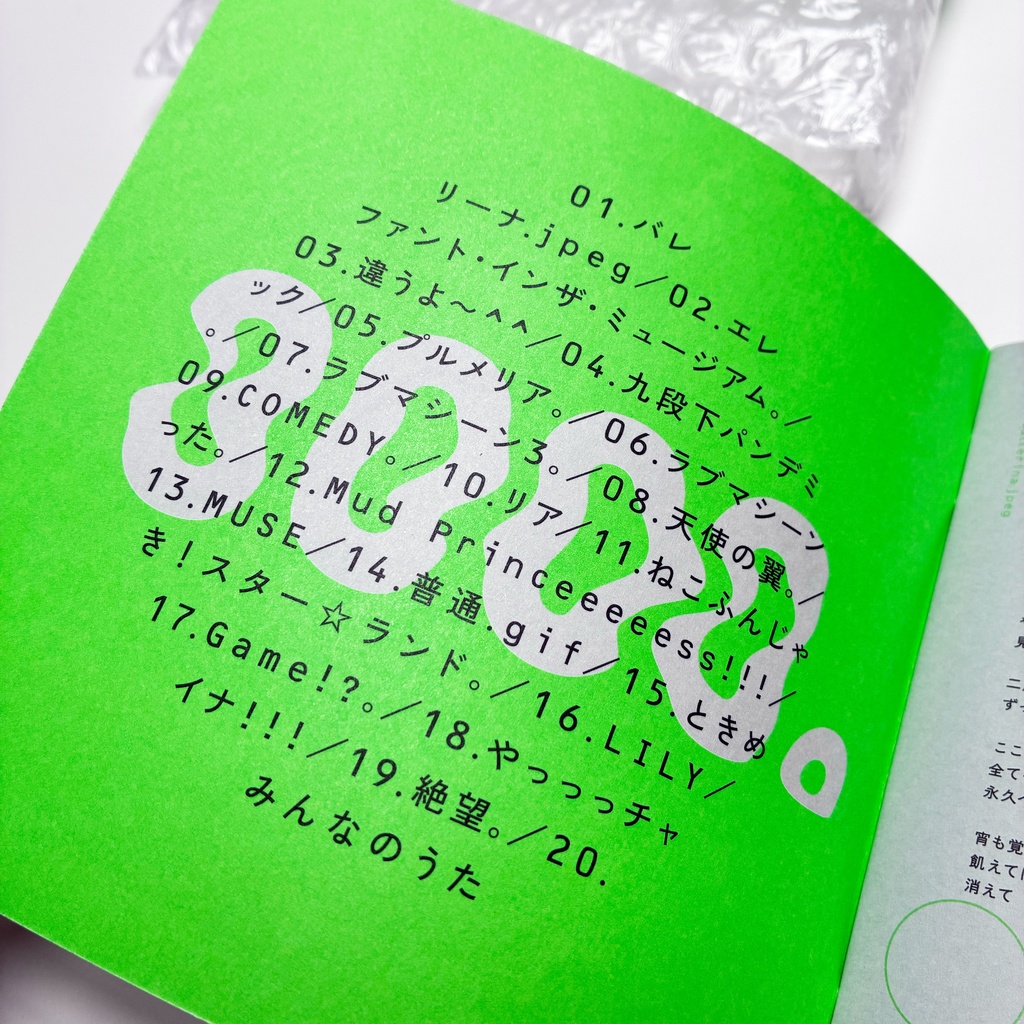 01.バレ
リーナ.jpeg/02.エレ
ファント・インザ・ミュージアム。/
03.違うよ〜^^/04.九段下パンデミ
ック/05.プルメリア。/06.ラブマシーン
。/07.ラブマシーン3。/08.天使の翼。/
09.COMEDY。/10.リア/11.ねこふんじゃ
った。/12.Mud Princeeeeess!!!/
13.MUSE/14.普通.gif/15.ときめ
き!スター☆ランド。/16.LILY/
17.Game!?。/18.やっっっチャ
イナ!!!/19.絶望。/20.
みんなのうた
ここ
全て
永久
宵も覚
飢えて
消えて